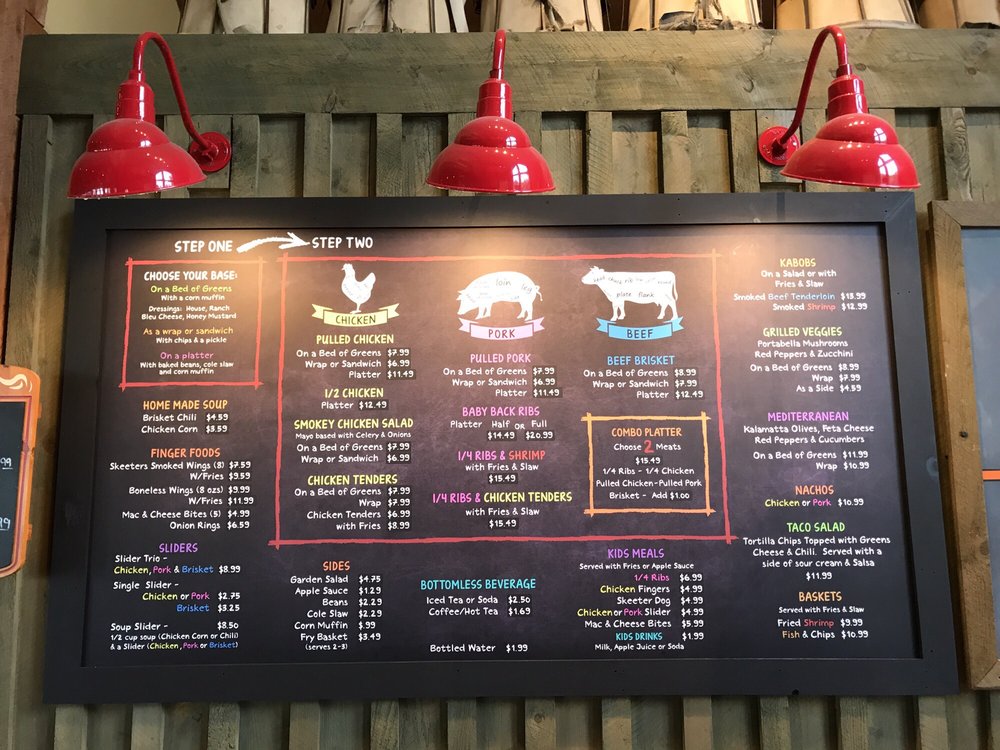 STEP ONE STEP TWO
CHOOSE YOUR BASE:
On a Bed of Greens
With a corn muffin
Dressings: House, Ranch
Bleu Cheese, Honey Mustard
As a wrap or sandwich
With chips & a pickle
On a platter
With baked beans, cole slaw
and corn muffin
HOME MADE SOUP
Brisket Chili $4.59
Chicken Corn $3.59
FINGER FOODS
Skeeters Smoked Wings (8) $7.59
W/Fries $9.59
Boneless Wings (8 ozs) $9.99
W/Fries $11.99
Mac & Cheese Bites (5) $4.99
Onion Rings $6.59
SLIDERS
Slider Trio -
Chicken, Pork & Brisket $8.99
Single Slider -
Chicken or Pork $2.75
Brisket $3.25
Soup Slider - $8.50
1/2 cup soup (Chicken Corn or Chili)
& a Slider (Chicken, Pork or Brisket)
CHICKEN
PULLED CHICKEN
On a Bed of Greens $7.99
Wrap or Sandwich $6.99
Platter $11.49
1/2 CHICKEN
Platter $12.49
SMOKEY CHICKEN SALAD
Mayo based with Celery & Onions
On a Bed of Greens $7.99
Wrap or Sandwich $6.99
CHICKEN TENDERS
On a Bed of Greens $7.99
Wrap $7.99
Chicken Tenders $6.99
with Fries $8.99
loin
leg
PORK
PULLED PORK
On a Bed of Greens $7.99
Wrap or Sandwich $6.99
Platter $11.49
BABY BACK RIBS
Platter Half OR Full
$14.49 $20.99
1/4 RIBS & SHRIMP
with Fries & Slaw
$15.49
1/4 RIBS & CHICKEN TENDERS
with Fries & Slaw
$15.49
plate flank
BEEF
BEEF BRISKET
On a Bed of Greens $8.99
Wrap or Sandwich $7.99
Platter $12.49
COMBO PLATTER
Choose 2 Meats
$15.49
1/4 Ribs - 1/4 Chicken
Pulled Chicken-Pulled Pork
Brisket - Add $1.00
SIDES
Garden Salad $4.75
Apple Sauce $1.29
Beans $2.29
Cole Slaw $2.29
Corn Muffin $.99
Fry Basket $3.49
(serves 2-3)
BOTTOMLESS BEVERAGE
Iced Tea or Soda $2.50
Coffee/Hot Tea $1.69
Bottled Water $1.99
KIDS MEALS
Served with Fries or Apple Sauce
1/4 Ribs $6.99
Chicken Fingers $4.99
Skeeter Dog $4.99
Chicken or Pork Slider $4.99
Mac & Cheese Bites $5.99
KIDS DRINKS $1.99
Milk, Apple Juice or Soda
KABOBS
On a Salad or with
Fries & Slaw
Smoked Beef Tenderloin $13.99
Smoked Shrimp $12.99
GRILLED VEGGIES
Portabella Mushrooms
Red Peppers & Zucchini
On a Bed of Greens $8.99
Wrap $7.99
As a Side $4.59
MEDITERRANEAN
Kalamatta Olives, Feta Cheese
Red Peppers & Cucumbers
On a Bed of Greens $11.99
Wrap $10.99
NACHOS
Chicken or Pork $10.99
TACO SALAD
Tortilla Chips Topped with Greens
Cheese & Chili. Served with a
side of sour cream & Salsa
$11.99
BASKETS
Served with Fries & Slaw
Fried Shrimp $9.99
Fish & Chips $10.99